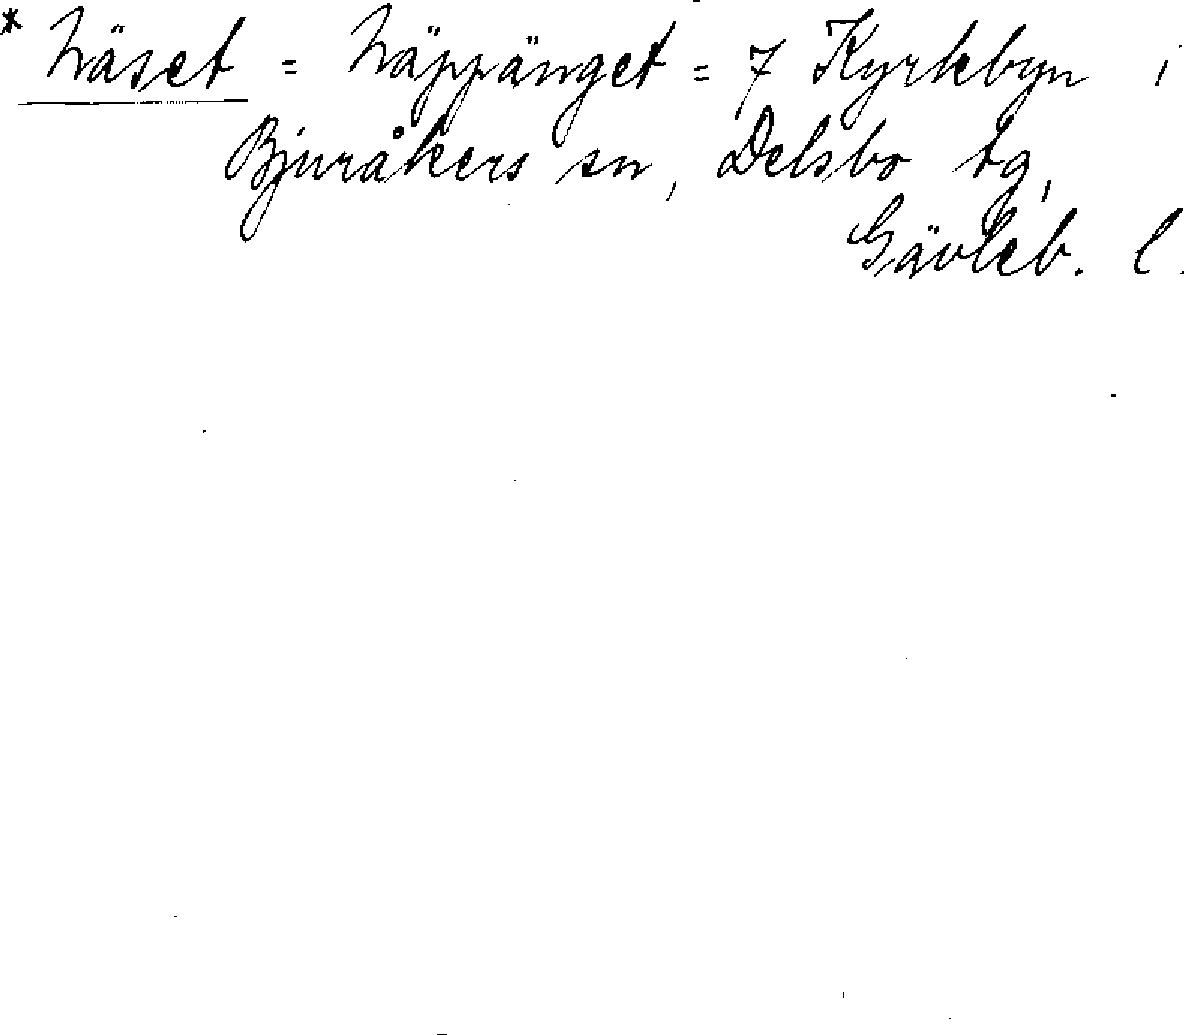 * Näset = Näppänget = 7 Kyrkbyn i
Bjuråkers sn, Delsbo tg,
Gävleb. l.